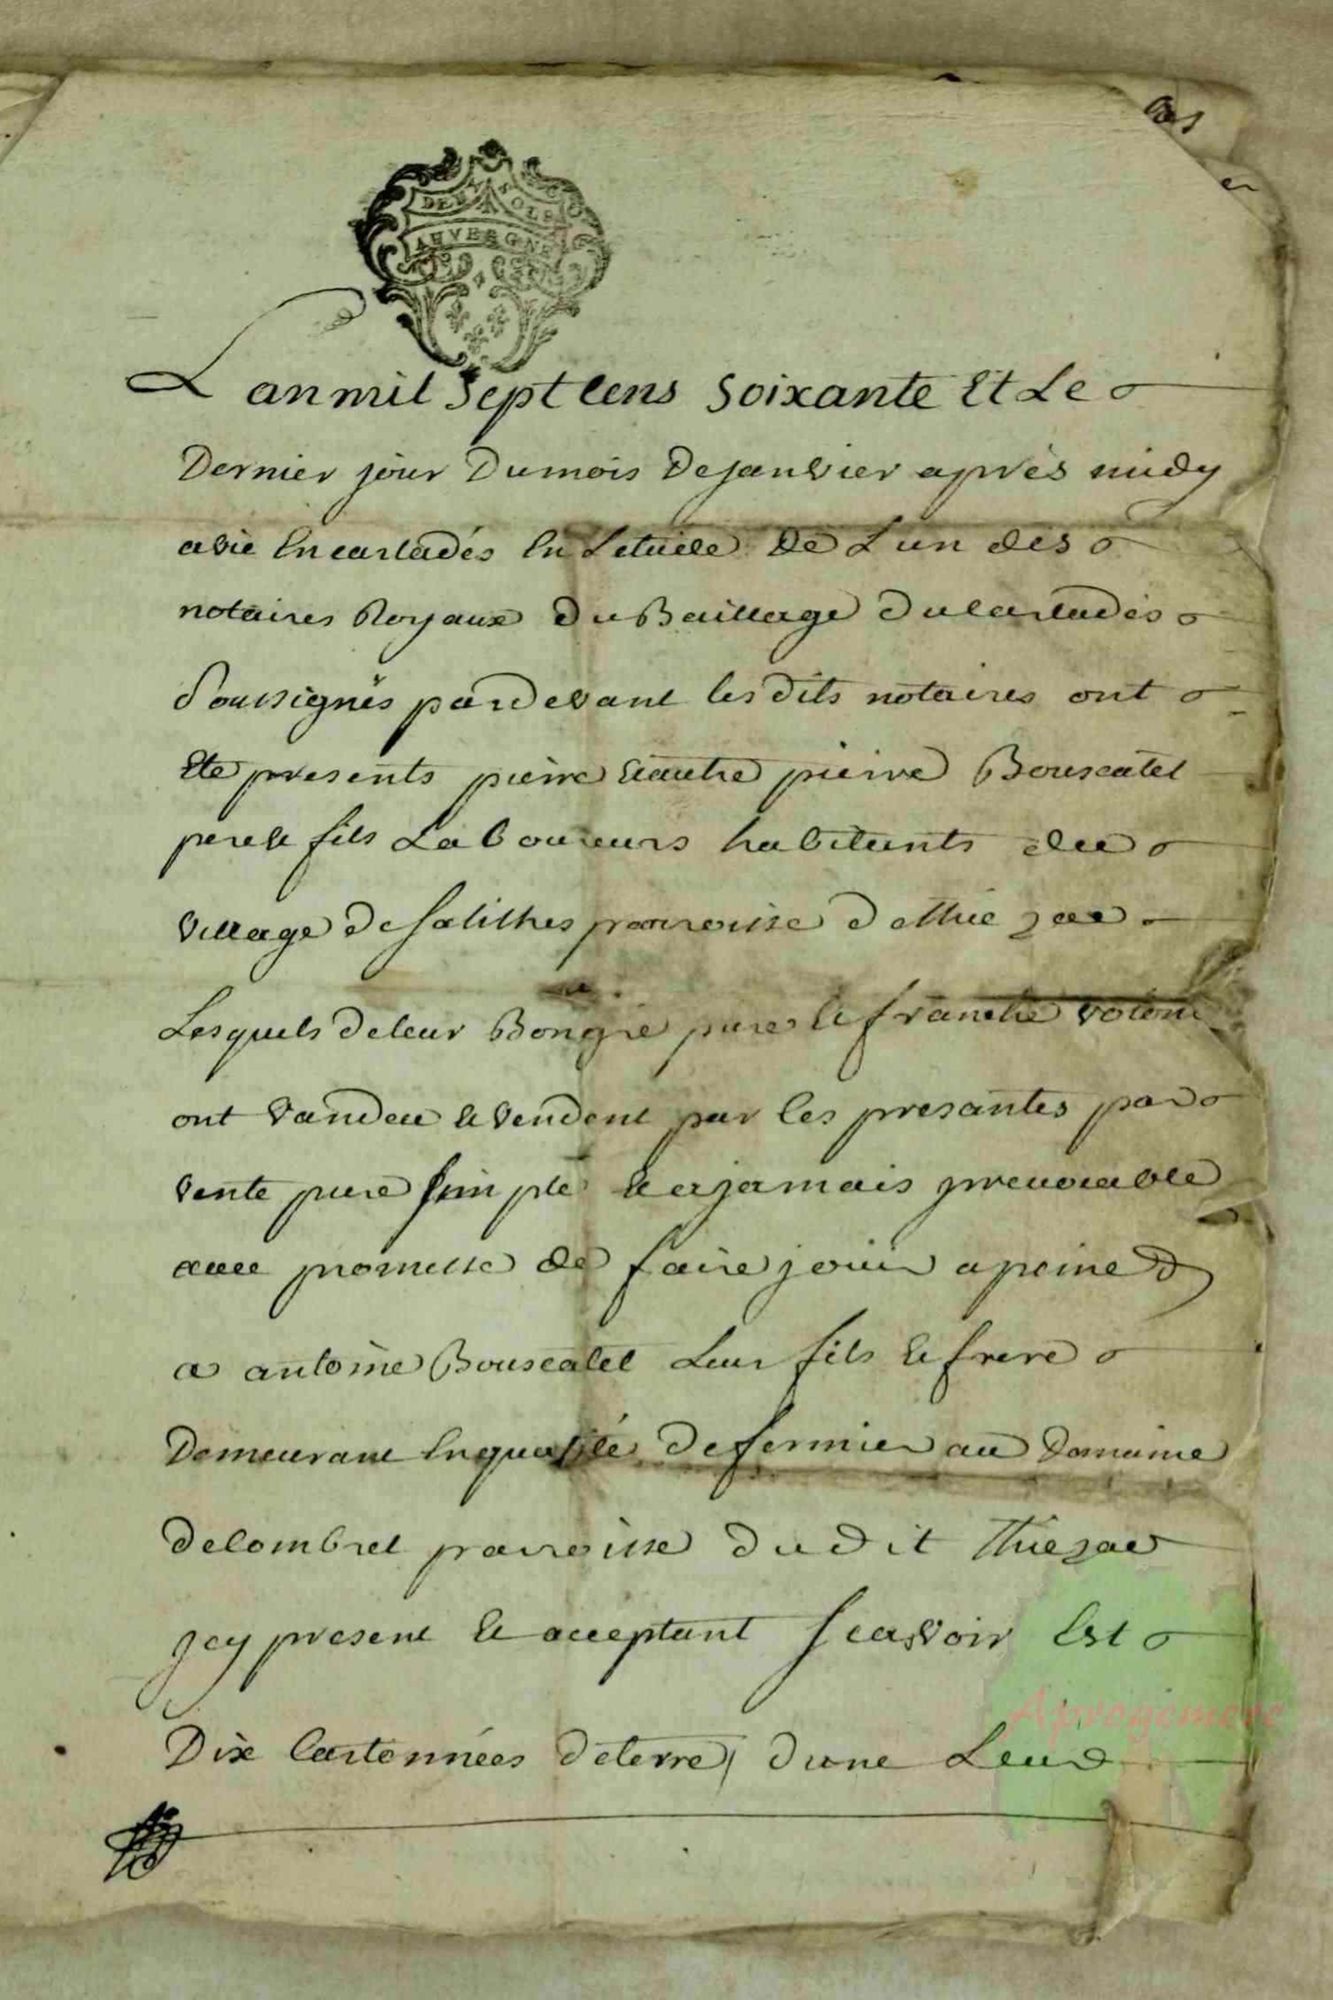 DEUX SOLS
AUVERGNE
L'an mil Sept Cens Soixante Et Le
Dernier jour Du mois De janvier après midy
a vic En carladés En Letude De L'un des
notaires Royaux Du Baillage Du Carladés
Soussignés pardevant les dits notaires ont
Eté presents pierre Et autre pierre Bouscatel
pere & fils Laboureurs habitants du
village de Salilhes parroisse de thiezac
Lesquels de leur Bon gré pure & franche volon
ont vandeu & vendent par les presantes par
vente pure simple & a jamais jrrevocable
avec promesse de faire jouir a peine D
a antoine Bouscatel Leur fils & frere
Demeurant En qualité de fermier au Domaine
de lombret parroisse Du dit Thiezac
jcy present & acceptant Scavoir Est
Dix Cartonnées de terre d'une
Aprogemere